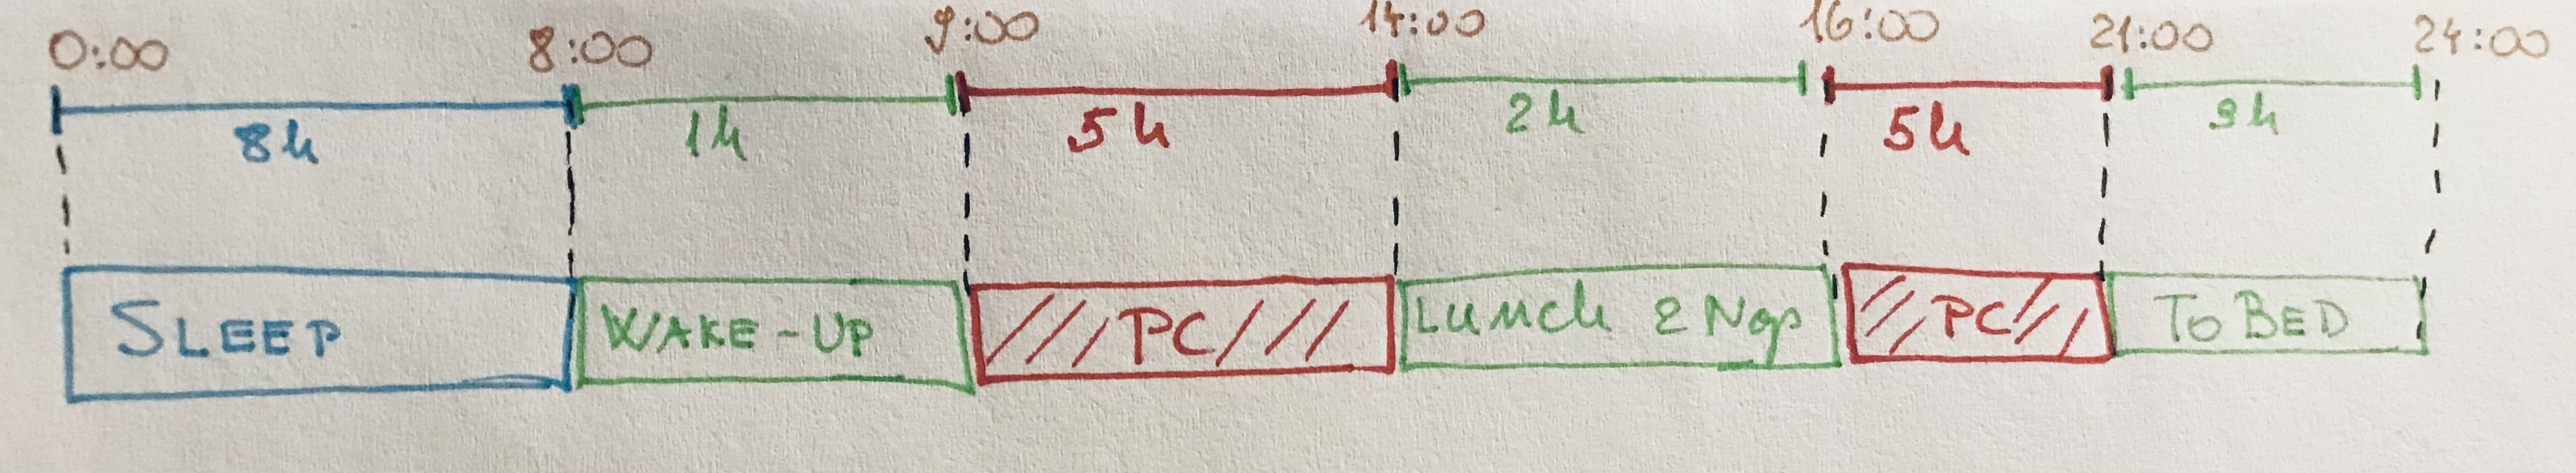 0:00 8:00 9:00 14:00 16:00 21:00 24:00
8h 1h 5h 2h 5h 3h
SLEEP WAKE-UP PC Lunch 2 Nap PC To BED